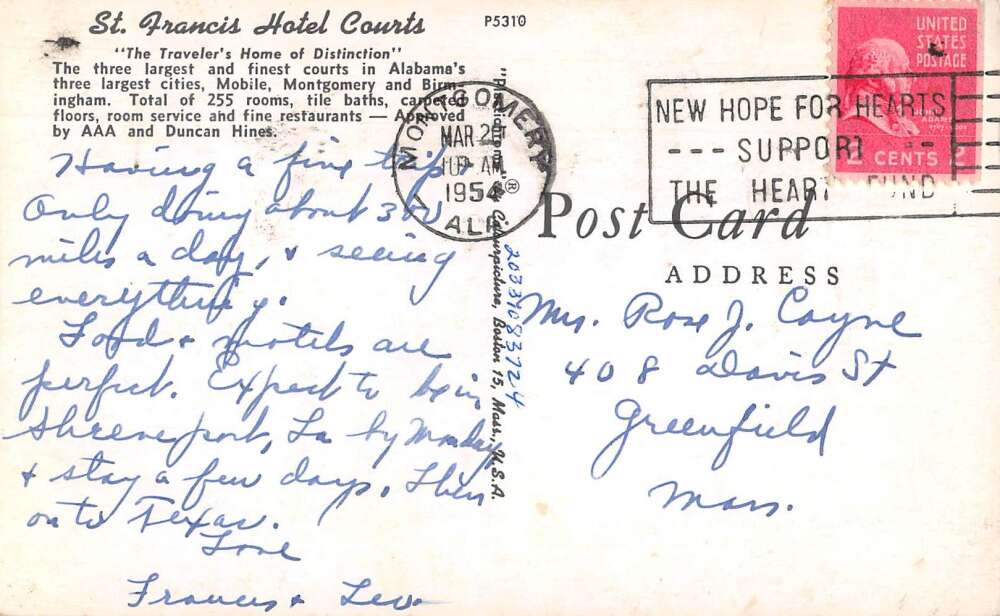 St. Francis Hotel Courts
"The Traveler's Home of Distinction"
The three largest and finest courts in Alabama's
three largest cities, Mobile, Montgomery and Birm-
ingham. Total of 255 rooms, tile baths, carpeted
floors, room service and fine restaurants — Approved
by AAA and Duncan Hines.
Having a fine trip.
Only doing about 300
miles a day, & seeing
everything.
Food & motels are
perfect. Expect to be in
Shreveport, La by Monday
& stay a few days. Then
on to Texas.
Love
Frances & Leo
P5310
MONTGOMERY
MAR 2
AM
1954
ALA.
Colourpicture, Boston 15, Mass., U.S.A.
20334083724
UNITED
STATES
POSTAGE
JOHN
ADAMS
2 CENTS 2
NEW HOPE FOR HEARTS
--- SUPPORT ---
THE HEART FUND
Post Card
ADDRESS
Mrs. Rose J. Coyne
408 Davis St
Greenfield
Mass.